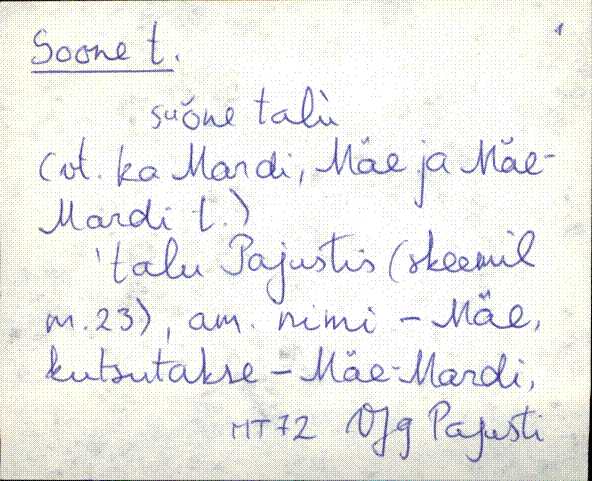 Soone t.
1
suõne talù
(vt. ka Mardi, Mäe ja Mäe-
Mardi t.)
'talu Pajustis (skeemil
nr. 23), am. nimi - Mäe,
kutsutakse - Mäe-Mardi,
MT 72 VJg Pajusti